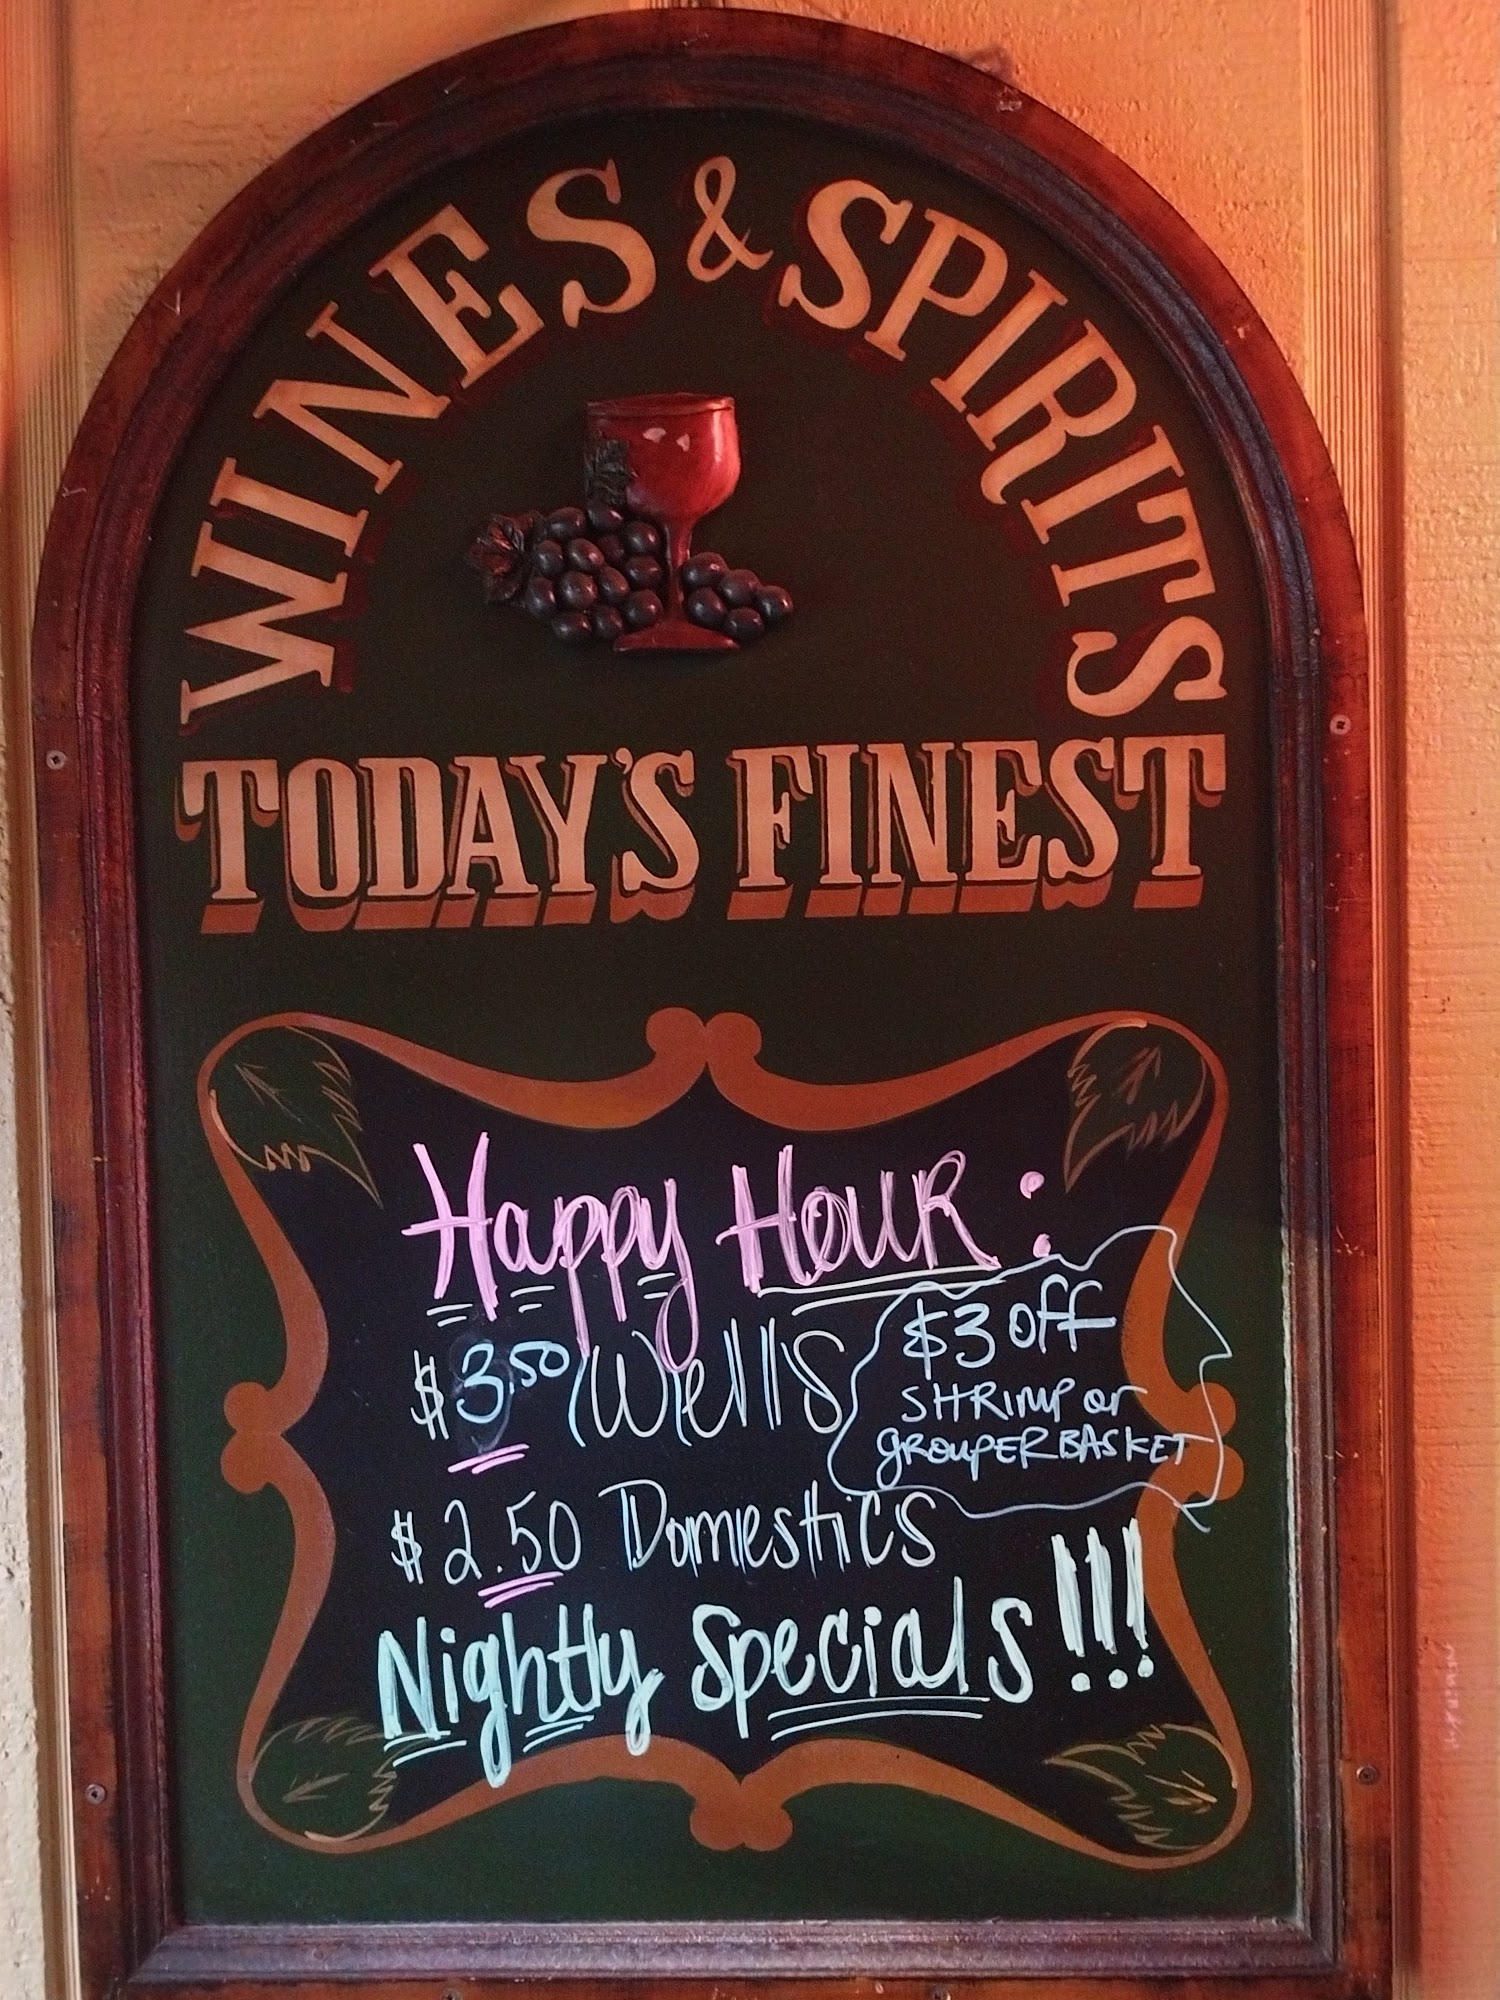 WINES & SPIRITS
TODAY'S FINEST
Happy Hour:
$3.50 Wells
$3 off
SHRIMP or
GROUPER BASKET
$2.50 Domestics
Nightly Specials!!!